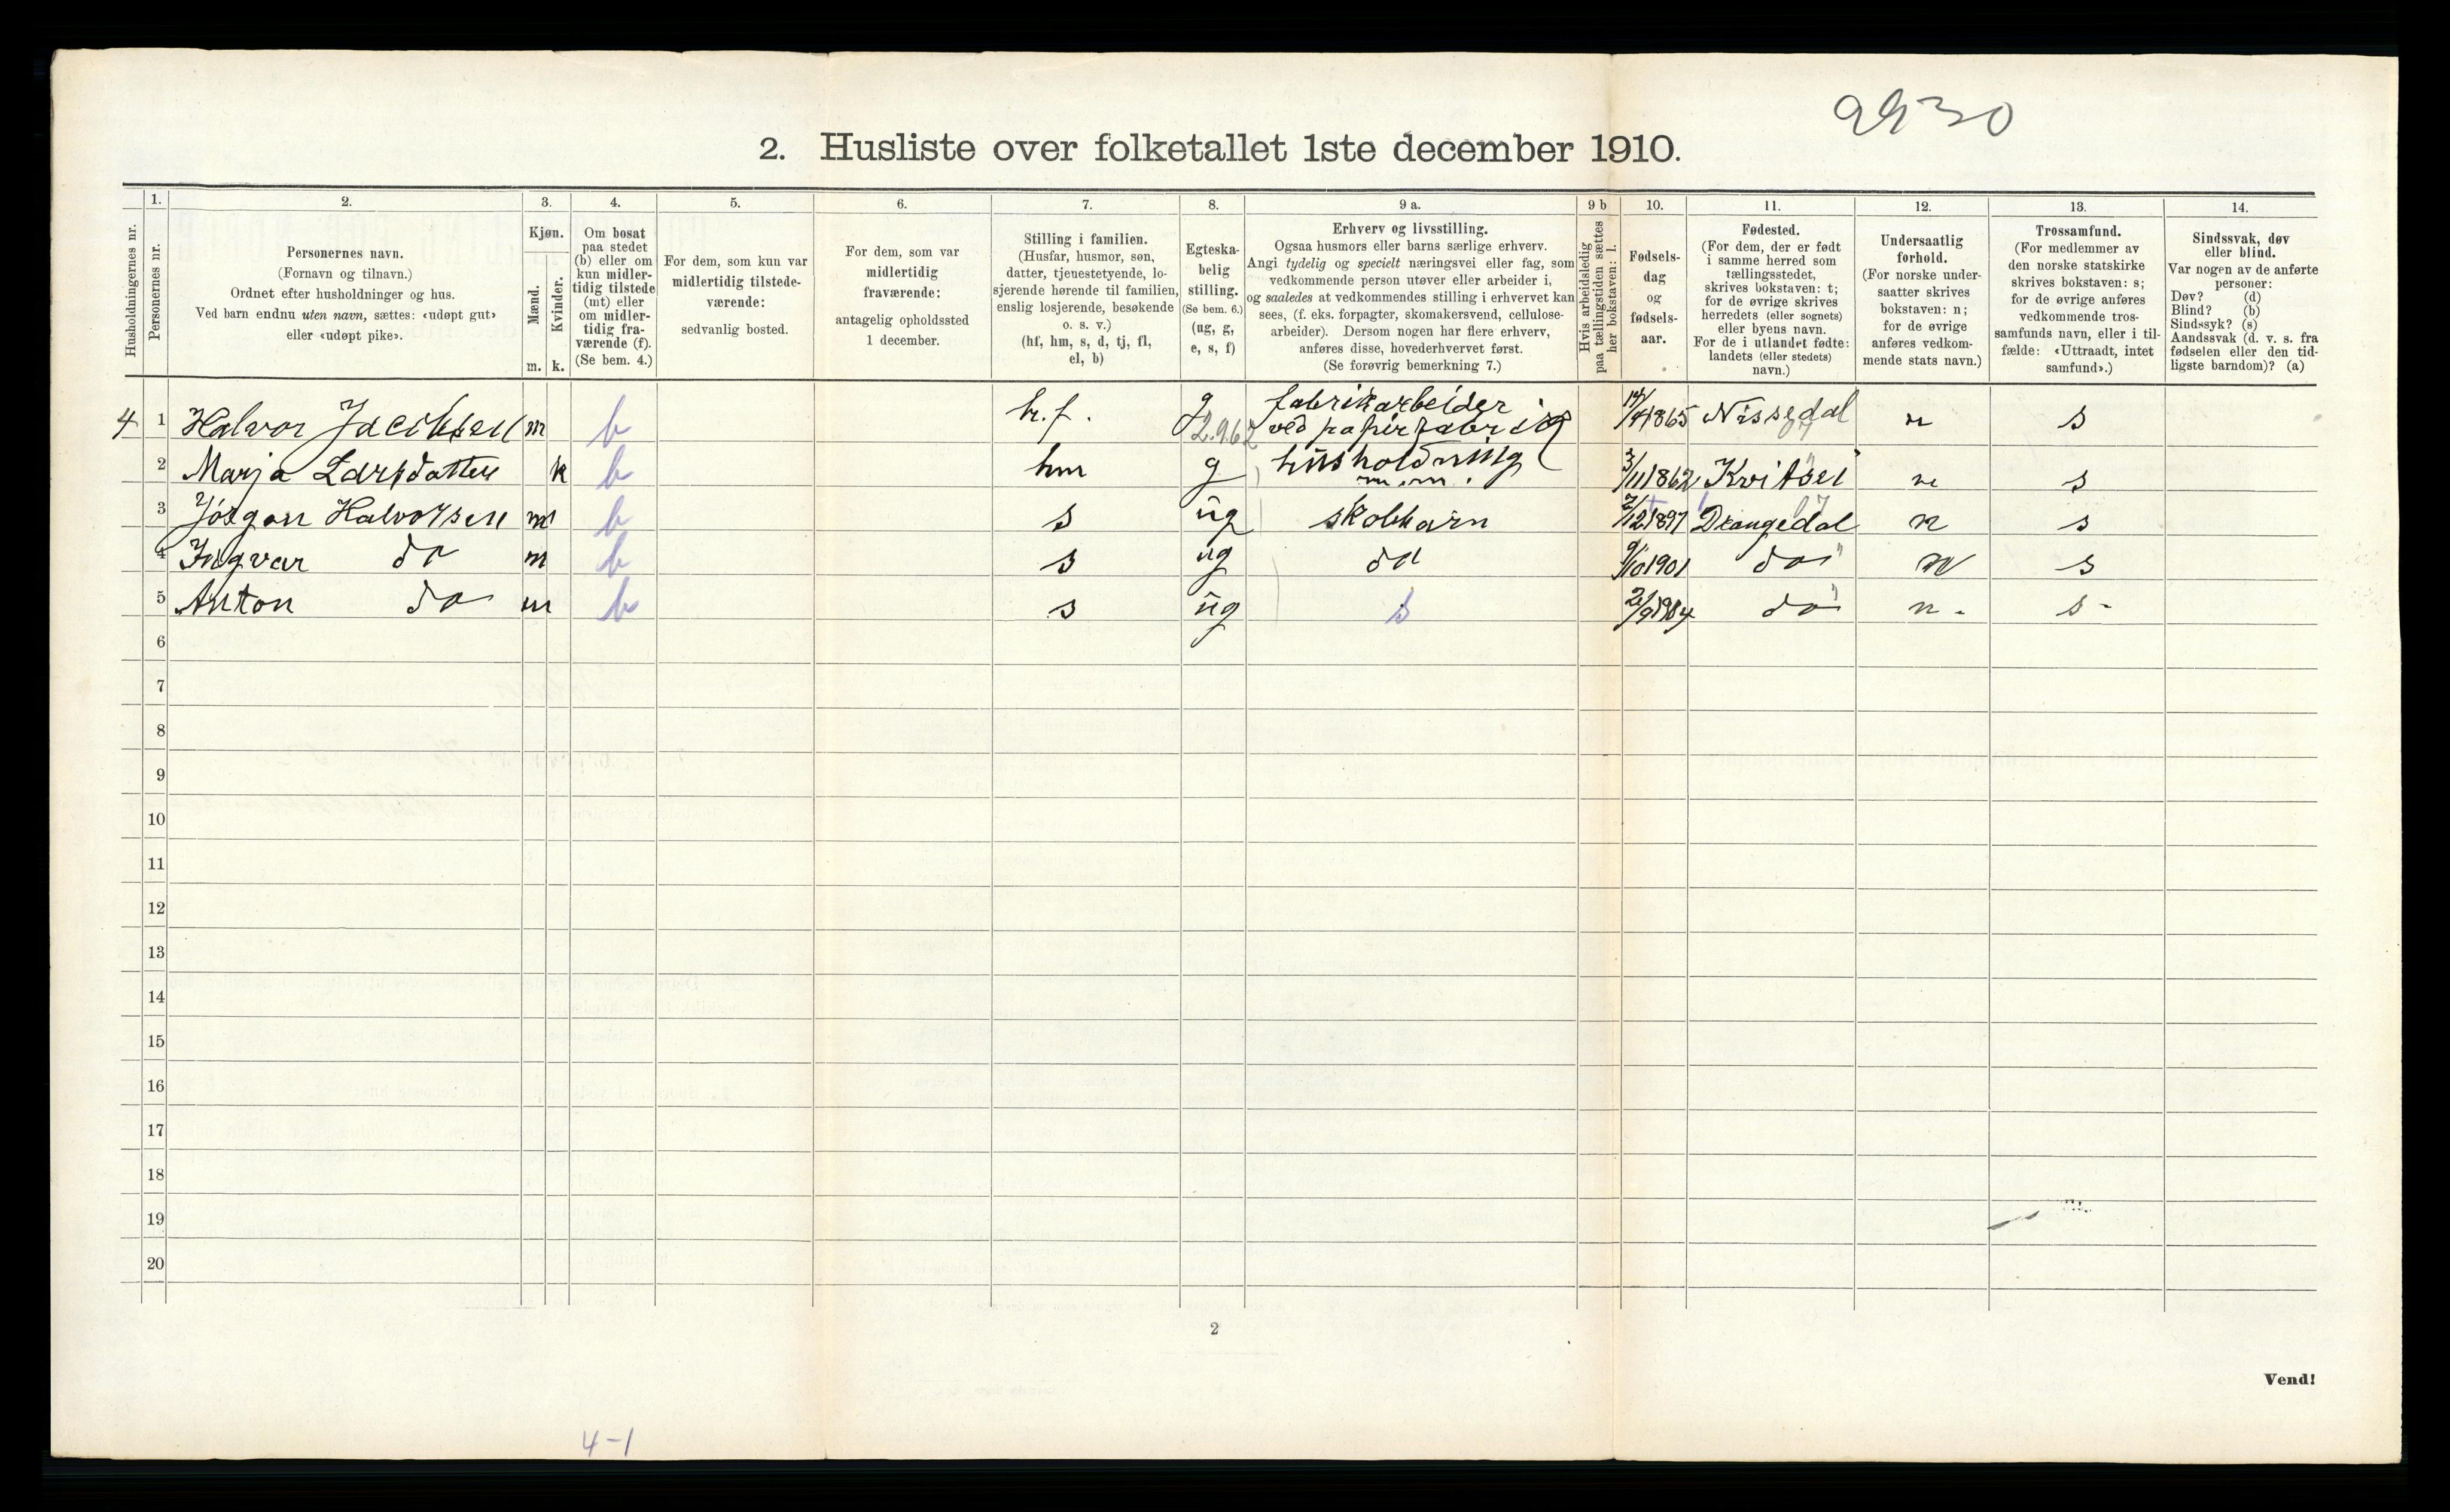 9930
2. Husliste over folketallet 1ste december 1910.
Husholdningernes nr.
1.
Personernes nr.
2.
Personernes navn.
(Fornavn og tilnavn.)
Ordnet efter husholdninger og hus.
Ved barn endnu uten navn, sættes: «udøpt gut»
eller «udøpt pike».
3.
Kjøn.
Mænd.
Kvinder.
m. k.
4.
Om bosat
paa stedet
(b) eller om
kun midler-
tidig tilstede
(mt) eller
om midler-
tidig fra-
værende (f).
(Se bem. 4.)
5.
For dem, som kun var
midlertidig tilstede-
værende:
sedvanlig bosted.
6.
For dem, som var
midlertidig
fraværende:
antagelig opholdssted
1 december.
7.
Stilling i familien.
(Husfar, husmor, søn,
datter, tjenestetyende, lo-
sjerende hørende til familien,
enslig losjerende, besøkende
o. s. v.)
(hf, hm, s, d, tj, fl,
el, b)
8.
Egteska-
belig
stilling.
(Se bem. 6.)
(ug, g,
e, s, f)
9 a.
Erhverv og livsstilling.
Ogsaa husmors eller barns særlige erhverv.
Angi tydelig og specielt næringsvei eller fag, som
vedkommende person utøver eller arbeider i,
og saaledes at vedkommendes stilling i erhvervet kan
sees, (f. eks. forpagter, skomakersvend, cellulose-
arbeider). Dersom nogen har flere erhverv,
anføres disse, hovederhvervet først.
(Se forøvrig bemerkning 7.)
9 b
Hvis arbeidsledig
paa tællingstiden sættes
her bokstaven: l.
10.
Fødsels-
dag
og
fødsels-
aar.
11.
Fødested.
(For dem, der er født
i samme herred som
tællingsstedet,
skrives bokstaven: t;
for de øvrige skrives
herredets (eller sognets)
eller byens navn.
For de i utlandet fødte:
landets (eller stedets)
navn.)
12.
Undersaatlig
forhold.
(For norske under-
saatter skrives
bokstaven: n;
for de øvrige
anføres vedkom-
mende stats navn.)
13.
Trossamfund.
(For medlemmer av
den norske statskirke
skrives bokstaven: s;
for de øvrige anføres
vedkommende tros-
samfunds navn, eller i til-
fælde: «Uttraadt, intet
samfund».)
14.
Sindssvak, døv
eller blind.
Var nogen av de anførte
personer:
Døv? (d)
Blind? (b)
Sindssyk? (s)
Aandssvak (d. v. s. fra
fødselen eller den tid-
ligste barndom)? (a)
4 1 Halvor Jacobsen m b h.f. g 2.9.62 fabrikarbeider ved papirfabrik 14/4 1865 Nissedal n s
2 Marja Larsdatter k b hm g husholdning m.m. 3/11 1862 Kvitsei n s
3 Jørgon Halvorsen m b s ug skolbarn 2/12 1897 Drangedal n s
4 Ingvar do m b s ug do 9/10 1901 do n s
5 Anton do m b s ug s 2/9 1904 do n. s-
6
7
8
9
10
11
12
13
14
15
16
17
18
19
20
2
Vend!
4-1